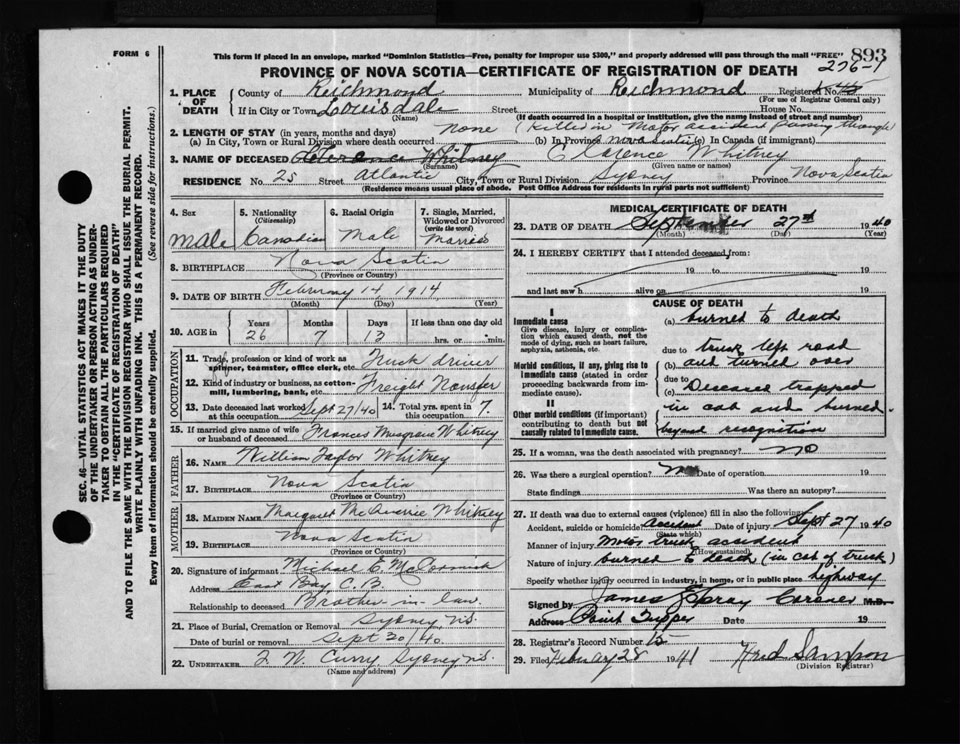 FORM 6
This form if placed in an envelope, marked "Dominion Statistics—Free, penalty for improper use $300," and properly addressed will pass through the mail "FREE"
893
276-1
PROVINCE OF NOVA SCOTIA—CERTIFICATE OF REGISTRATION OF DEATH
1. PLACE OF DEATH
County of Richmond Municipality of Richmond Registered No.
(For use of Registrar General only)
If in City or Town Louisdale Street House No.
(Name) (If death occurred in a hospital or institution, give the name instead of street and number)
2. LENGTH OF STAY (in years, months and days) none (Killed in Motor accident passing through)
(a) In City, Town or Rural Division where death occurred (b) In Province Nova Scotia (c) In Canada (if immigrant)
3. NAME OF DECEASED Clarence Whitney Clarence Whitney
(Surname) (Given name or names)
RESIDENCE No. 25 Street Atlantic City, Town or Rural Division Sydney Province Nova Scotia
(Residence means usual place of abode. Post Office Address for residents in rural parts not sufficient)
4. Sex
male
5. Nationality (Citizenship)
Canadian
6. Racial Origin
Male
7. Single, Married, Widowed or Divorced (write the word)
Married
8. BIRTHPLACE Nova Scotia
(Province or Country)
9. DATE OF BIRTH February 14 1914
(Month) (Day) (Year)
10. AGE in Years Months Days If less than one day old
26 7 13 hrs. or min.
OCCUPATION
11. Trade, profession or kind of work as spinner, teamster, office clerk, etc. Truck driver
12. Kind of industry or business, as cotton-mill, lumbering, bank, etc. Freight Transfer
13. Date deceased last worked at this occupation Sept 27/40 14. Total yrs. spent in this occupation 7.
15. If married give name of wife or husband of deceased Frances Musgrave Whitney
FATHER
16. NAME William Taylor Whitney
17. BIRTHPLACE Nova Scotia
(Province or Country)
MOTHER
18. MAIDEN NAME Margaret Whitney
19. BIRTHPLACE Nova Scotia
(Province or Country)
20. Signature of informant Michael E. McCormick
Address East Bay C.B.
Relationship to deceased Brother-in-law.
21. Place of Burial, Cremation or Removal Sydney, N.S.
Date of burial or removal Sept 30/40.
22. UNDERTAKER Curry, Sydney N.S.
(Name and address)
MEDICAL CERTIFICATE OF DEATH
23. DATE OF DEATH September 27th 1940
(Month) (Day) (Year)
24. I HEREBY CERTIFY that I attended deceased from:
19 to 19
and last saw h alive on 19
CAUSE OF DEATH
I
Immediate cause
Give disease, injury or complication which caused death, not the mode of dying, such as heart failure, asphyxia, asthenia, etc.
(a) burned to death
due to truck left road
Morbid conditions, if any, giving rise to immediate cause (stated in order proceeding backwards from immediate cause).
(b) and turned over
due to
(c) Deceased trapped
II
Other morbid conditions (if important) contributing to death but not causally related to immediate cause.
in cab and burned
beyond recognition
25. If a woman, was the death associated with pregnancy? no
26. Was there a surgical operation? No Date of operation 19
State findings Was there an autopsy?
27. If death was due to external causes (violence) fill in also the following:
Accident, suicide or homicide? Accident Date of injury Sept 27 1940
(State which)
Manner of injury Motor truck accident
(How sustained)
Nature of injury burned to death (in cab of truck)
Specify whether injury occurred in industry, in home, or in public place highway
Signed by James Coroner M.D.
Address Point Tupper Date 19
28. Registrar's Record Number 15
29. Filed February 28 1941 Sampson
(Division Registrar)
SEC. 46—VITAL STATISTICS ACT MAKES IT THE DUTY
OF THE UNDERTAKER OR PERSON ACTING AS UNDER-
TAKER TO OBTAIN ALL THE PARTICULARS REQUIRED
IN THE "CERTIFICATE OF REGISTRATION OF DEATH"
AND TO FILE THE SAME WITH THE DIVISION REGISTRAR WHO SHALL ISSUE THE BURIAL PERMIT.
WRITE PLAINLY WITH UNFADING INK. THIS IS A PERMANENT RECORD.
Every item of information should be carefully supplied. (See reverse side for instructions.)